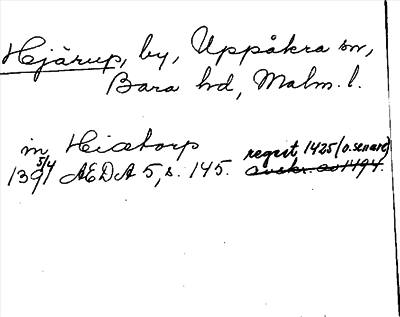 Hjärup, by, Uppåkra sn,
Bara hd, Malm. l.
in Hiætorp
1397 5/4 AEDA 5, s. 145. regest 1425 (o. senare)
avskr. av 1494.